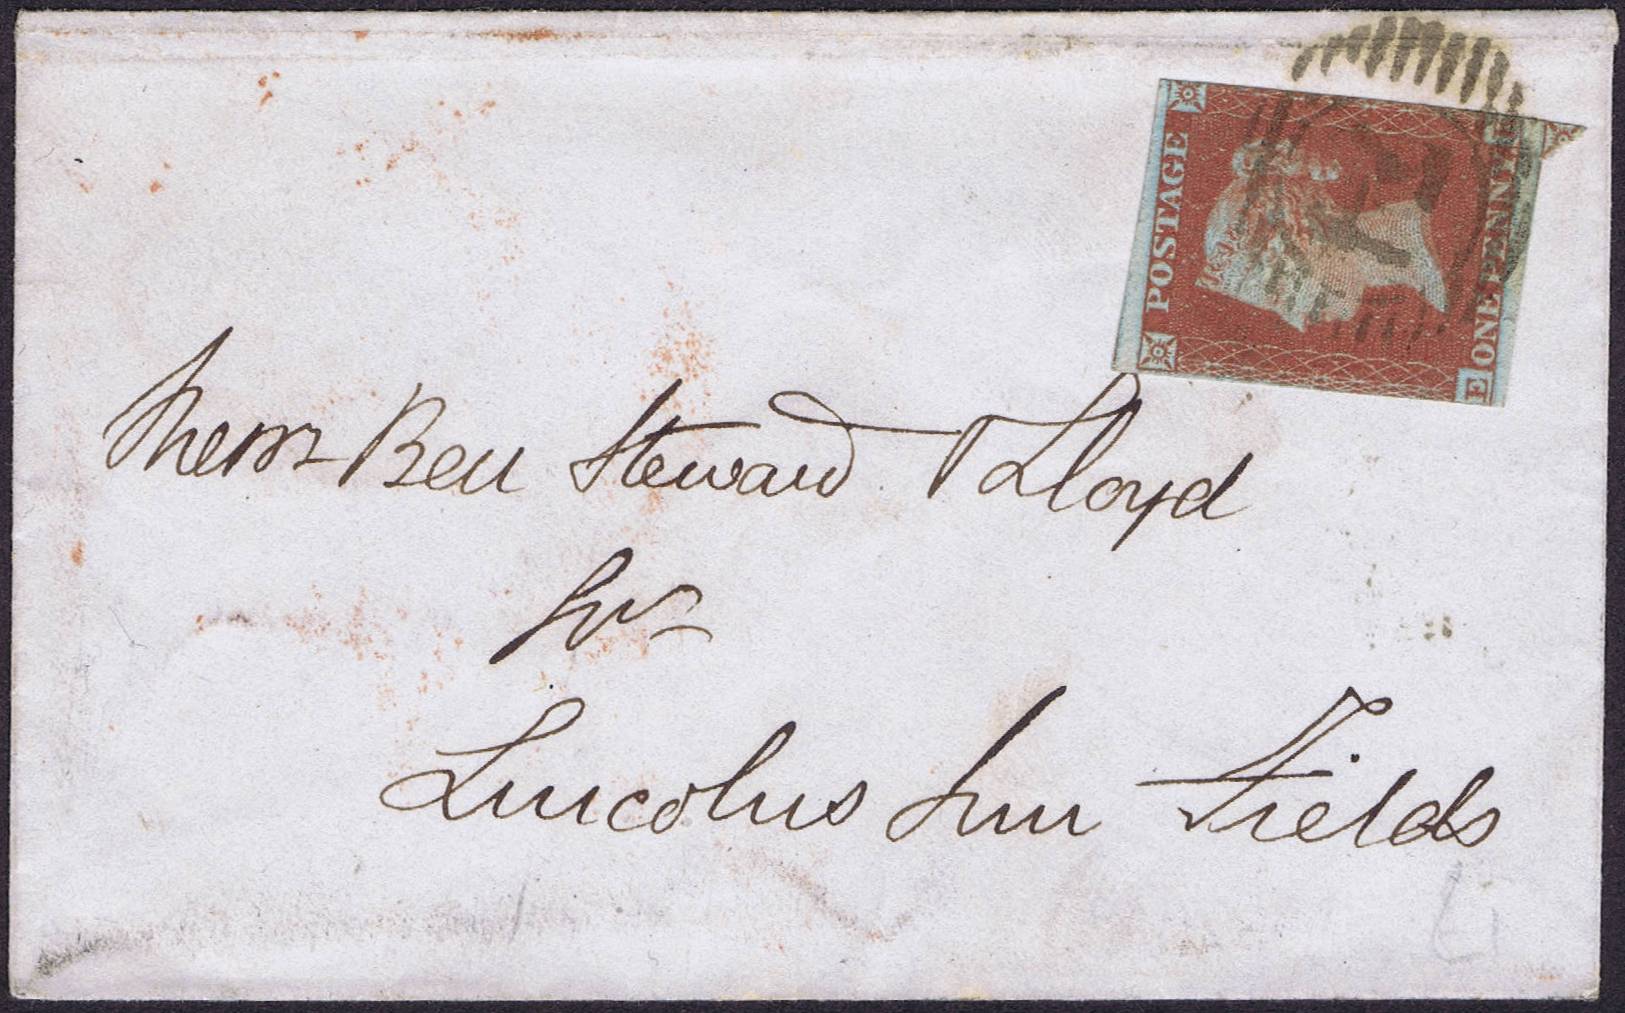 POSTAGE
ONE PENNY
E
Messrs Bell Steward & Lloyd
Lincolns Inn Fields